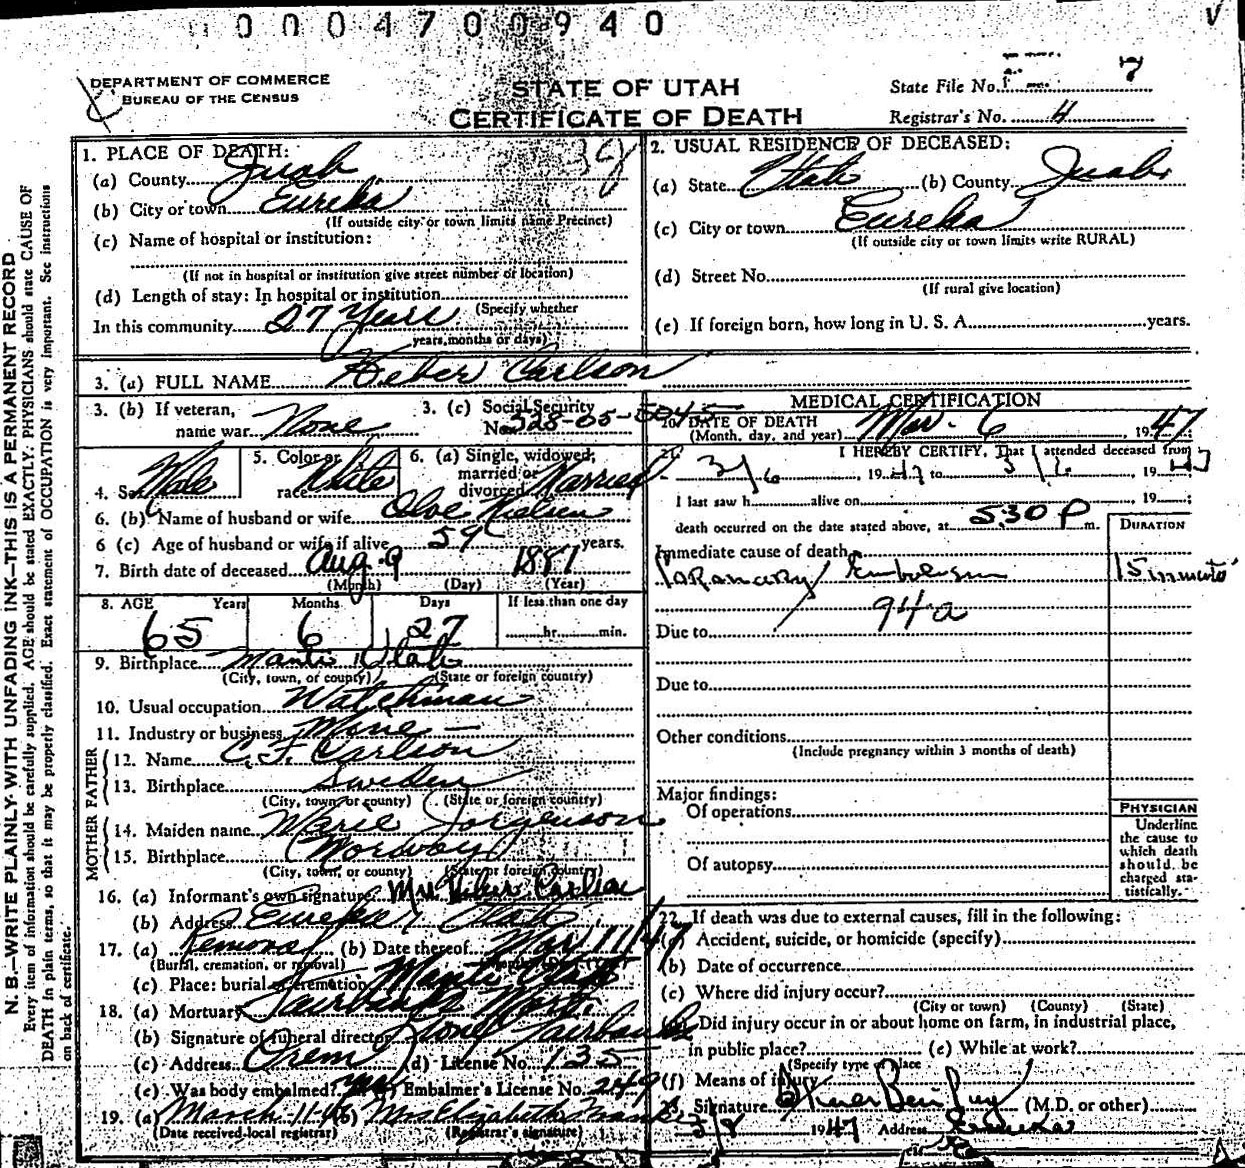 0004700940
V
DEPARTMENT OF COMMERCE
BUREAU OF THE CENSUS
STATE OF UTAH
CERTIFICATE OF DEATH
State File No. 7
Registrar's No. 4
N. B.—WRITE PLAINLY WITH UNFADING INK—THIS IS A PERMANENT RECORD
Every item of information should be carefully supplied. AGE should be stated EXACTLY. PHYSICIANS should state CAUSE OF
DEATH in plain terms, so that it may be properly classified. Exact statement of OCCUPATION is very important. See instructions
on back of certificate.
1. PLACE OF DEATH:
(a) County Juab
(b) City or town Eureka
(If outside city or town limits name Precinct)
(c) Name of hospital or institution:
(If not in hospital or institution give street number or location)
(d) Length of stay: In hospital or institution
(Specify whether
In this community 27 Years
years, months or days)
2. USUAL RESIDENCE OF DECEASED:
(a) State Utah (b) County Juab
(c) City or town Eureka
(If outside city or town limits write RURAL)
(d) Street No.
(If rural give location)
(e) If foreign born, how long in U. S. A. years.
3. (a) FULL NAME Heber Carlson
3. (b) If veteran, name war None
3. (c) Social Security No. 528-05-5045
4. Sex Male
5. Color or race White
6. (a) Single, widowed, married or divorced Married
6. (b) Name of husband or wife Nielsen
6 (c) Age of husband or wife if alive 59 years.
7. Birth date of deceased Aug. 9 1881
(Month) (Day) (Year)
8. AGE Years Months Days If less than one day
65 6 27 hr. min.
9. Birthplace Manti Utah
(City, town, or county) (State or foreign country)
10. Usual occupation Watchman
11. Industry or business Mine
FATHER
12. Name C. F. Carlson
13. Birthplace Sweden
(City, town or county) (State or foreign country)
MOTHER
14. Maiden name Marie Jorgenson
15. Birthplace Norway
(City, town, or county) (State or foreign country)
16. (a) Informant's own signature Mrs Heber Carlson
(b) Address Eureka, Utah
17. (a) Removal (b) Date thereof Mar 11/47
(Burial, cremation, or removal)
(c) Place: burial or cremation Manti Utah
18. (a) Mortuary Fairbanks Mort.
(b) Signature of funeral director Fairbanks
(c) Address Orem (d) License No. 135
(e) Was body embalmed? yes Embalmer's License No. 249
19. (a) March 11-46 (b) Mrs Elizabeth
(Date received local registrar) (Registrar's signature)
MEDICAL CERTIFICATION
20. DATE OF DEATH
(Month, day, and year) Mar. 6, 1947
21. I HEREBY CERTIFY, That I attended deceased from
3/6, 1947 to 3/6, 1947
I last saw h alive on , 19 ;
death occurred on the date stated above, at 5:30 P m.
DURATION
Immediate cause of death
Coronary Embolism 15 minutes
94a
Due to
Due to
Other conditions
(Include pregnancy within 3 months of death)
Major findings:
Of operations
Of autopsy
PHYSICIAN
Underline
the cause to
which death
should be
charged sta-
tistically.
22. If death was due to external causes, fill in the following:
(a) Accident, suicide, or homicide (specify)
(b) Date of occurrence
(c) Where did injury occur?
(City or town) (County) (State)
(d) Did injury occur in or about home on farm, in industrial place,
in public place? (e) While at work?
(Specify type of place
(f) Means of injury
23. Signature (M.D. or other)
3/8 1947 Address Eureka